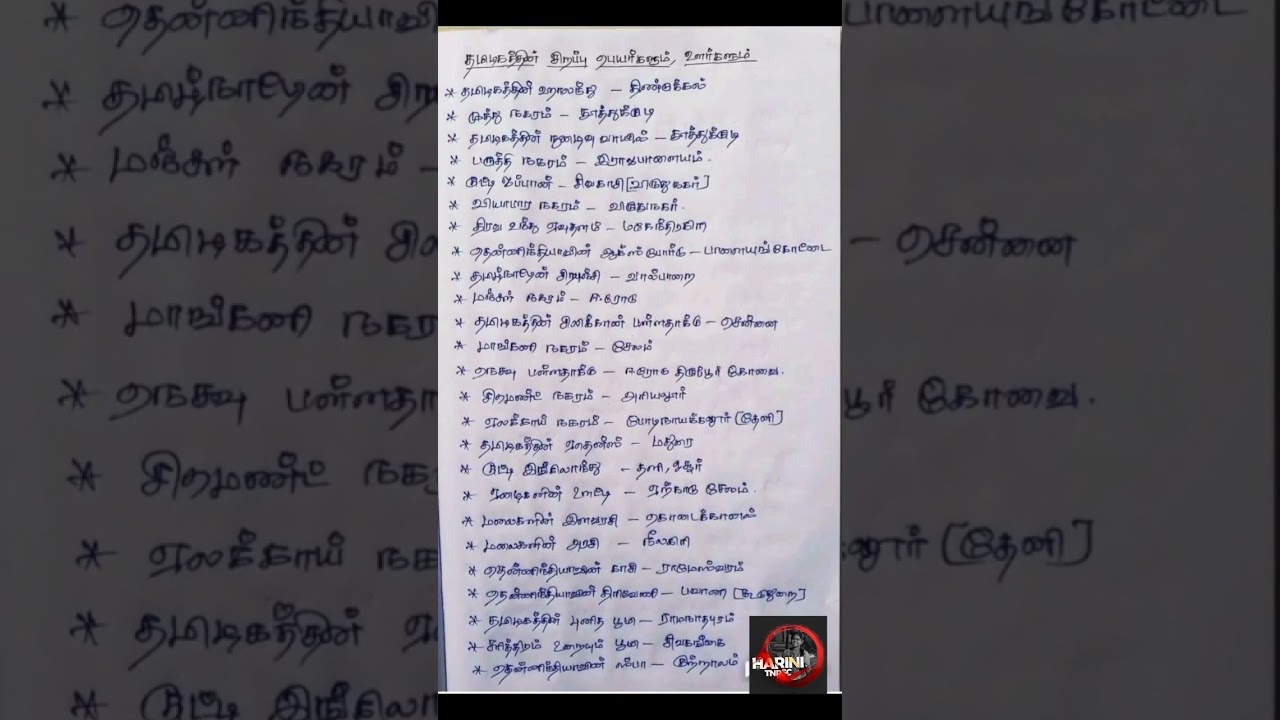 தமிழகத்தின் சிறப்பு பெயர்களும், ஊர்களும்
* தமிழகத்தின் ஹாலந்து – திண்டுக்கல்
* முத்து நகரம் – தூத்துக்குடி
* தமிழகத்தின் நுழைவு வாயில் – தூத்துக்குடி
* பருத்தி நகரம் – இராஜபாளையம்.
* குட்டி ஜப்பான் – சிவகாசி [விருதுநகர்]
* வியாபார நகரம் – விருதுநகர்.
* திரவ உந்து ஏவுதளம் – மகேந்திரகிரி
* தென்னிந்தியாவின் ஆக்ஸ்போர்டு – பாளையங்கோட்டை
* தமிழ்நாட்டின் சிரபுஞ்சி – வால்பாறை
* மஞ்சள் நகரம் – ஈரோடு
* தமிழகத்தின் சிலிக்கான் பள்ளதாக்கு – சென்னை
* மாங்கனி நகரம் – சேலம்
* நெசவு பள்ளதாக்கு – ஈரோடு திருப்பூர் கோவை.
* சிமெண்ட் நகரம் – அரியலூர்
* ஏலக்காய் நகரம் – போடிநாயக்கனூர் [தேனி]
* தமிழகத்தின் ஏதென்ஸ் – மதுரை
* குட்டி இங்கிலாந்து – தளி, ஓசூர்
* ஏழைகளின் ஊட்டி – ஏற்காடு சேலம்.
* மலைகளின் இளவரசி – கொடைக்கானல்
* மலைகளின் அரசி – நீலகிரி
* தென்னிந்தியாவின் காசி – ராமேஸ்வரம்
* தென்னிந்தியாவின் திரிவேணி – பவானி [கூடுதுறை]
* தமிழகத்தின் புனித பூமி – ராமநாதபுரம்
* சரித்திரம் உறையும் பூமி – சிவகங்கை
* தென்னிந்தியாவின் ஸ்பா – குற்றாலம்
HARINI
TNPSC